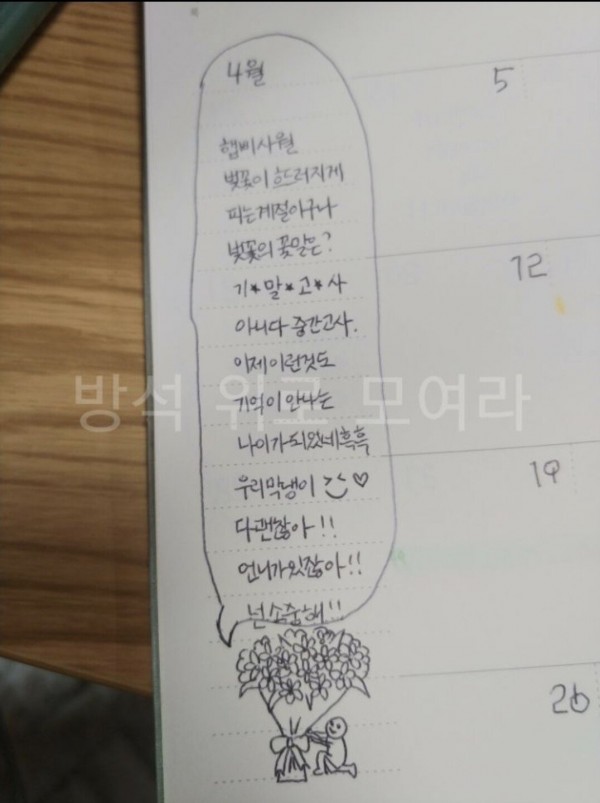 4월
햅삐사월
벚꽃이 흐드러지게
피는계절이구나
벚꽃의 꽃말은?
기*말*고*사
아니다 중간고사.
이제 이런것도
기억이 안나는
나이가 되었네 흑흑
우리막냉이 ><♡
다괜찮아!!
언니가있잖아!!
넌소중해!!
5
12
19
26
방석 위로 모여라